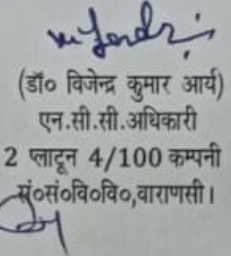 (डॉ० विजेन्द्र कुमार आर्य)
एन.सी.सी.अधिकारी
2 प्लाटून 4/100 कम्पनी
सं०सं०वि०वि०,वाराणसी।